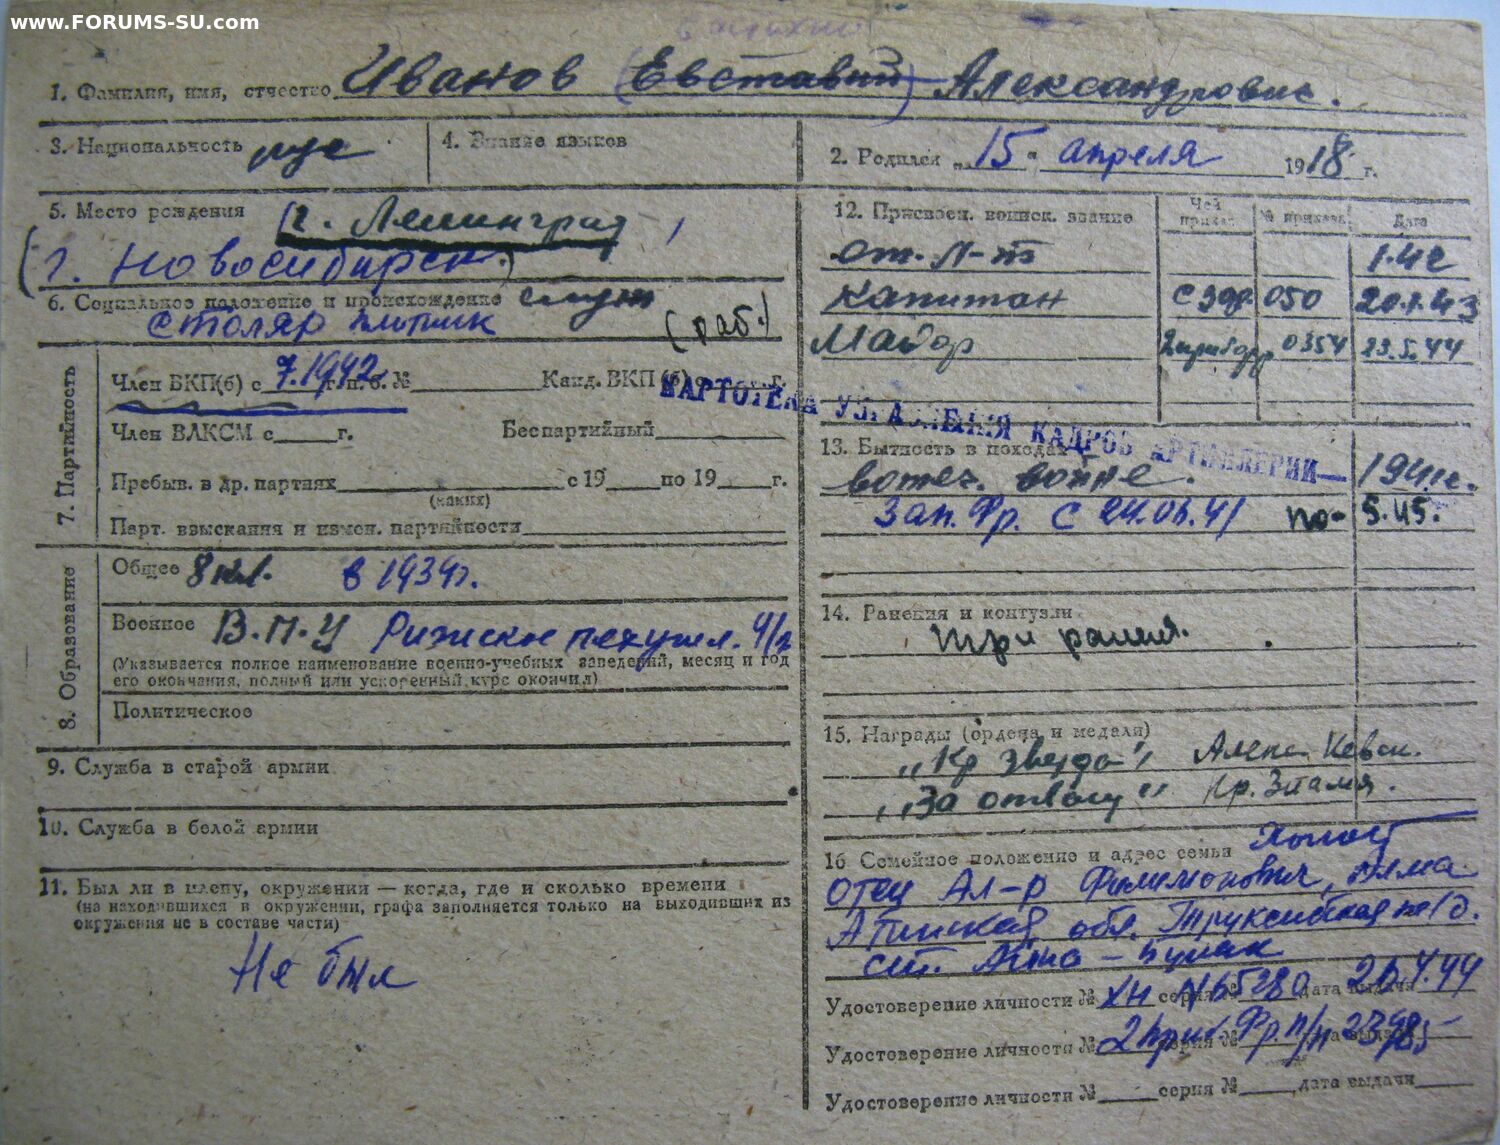 www.FORUMS-SU.com
1. Фамилия, имя, отчество Иванов (Евстафий) Александрович.
3. Национальность рус
4. Знание языков
2. Родился „15" апреля 1918 г.
5. Место рождения (г. Ленинград)
(г. Новосибирск)
6. Социальное положение и происхождение служ
столяр (раб.)
7. Партийность
Член ВКП(б) с 7.1942 г. п. б. № Канд. ВКП(б) с г.
Член ВЛКСМ с г. Беспартийный
Пребыв. в др. партиях с 19 по 19 г.
(каких)
Парт. взыскания и измен. партийности
8. Образование
Общее 8 кл. в 1934г.
Военное В.П.У Рижское пех. уч.
(Указывается полное наименование военно-учебных заведений, месяц и год
его окончания, полный или ускоренный курс окончил)
Политическое
9. Служба в старой армии
10. Служба в белой армии
11. Был ли в плену, окружении — когда, где и сколько времени
(на находившихся в окружении, графа заполняется только на выходивших из
окружения не в составе части)
Не был
12. Присвоен. воинск. звание Чей приказ № приказа Дата
ст. л-т 1.42
Капитан 050 20.1.43
Майор 2 прибфр 0354 23.5.44
КАРТОТЕКА УПРАВЛЕНИЯ КАДРОВ АРТИЛЛЕРИИ
13. Бытность в походах
в отеч. войне. 1941г.
Зап. Фр. с 24.06.41 по- 5.45.
14. Ранения и контузии
три ранен.
15. Награды (ордена и медали)
„Кр Звезда", Алекс. Невск.
„За отвагу" Кр. Знамя.
16 Семейное положение и адрес семьи Холост
отец Ал-р Филимонович, Алма
Атинская обл. Труксибская ж/д.
ст.
Удостоверение личности № ХН серия № дата выдачи 26.4.44
Удостоверение личности № 2 Приб. Фр. п/п серия № дата выдачи
Удостоверение личности № серия № дата выдачи